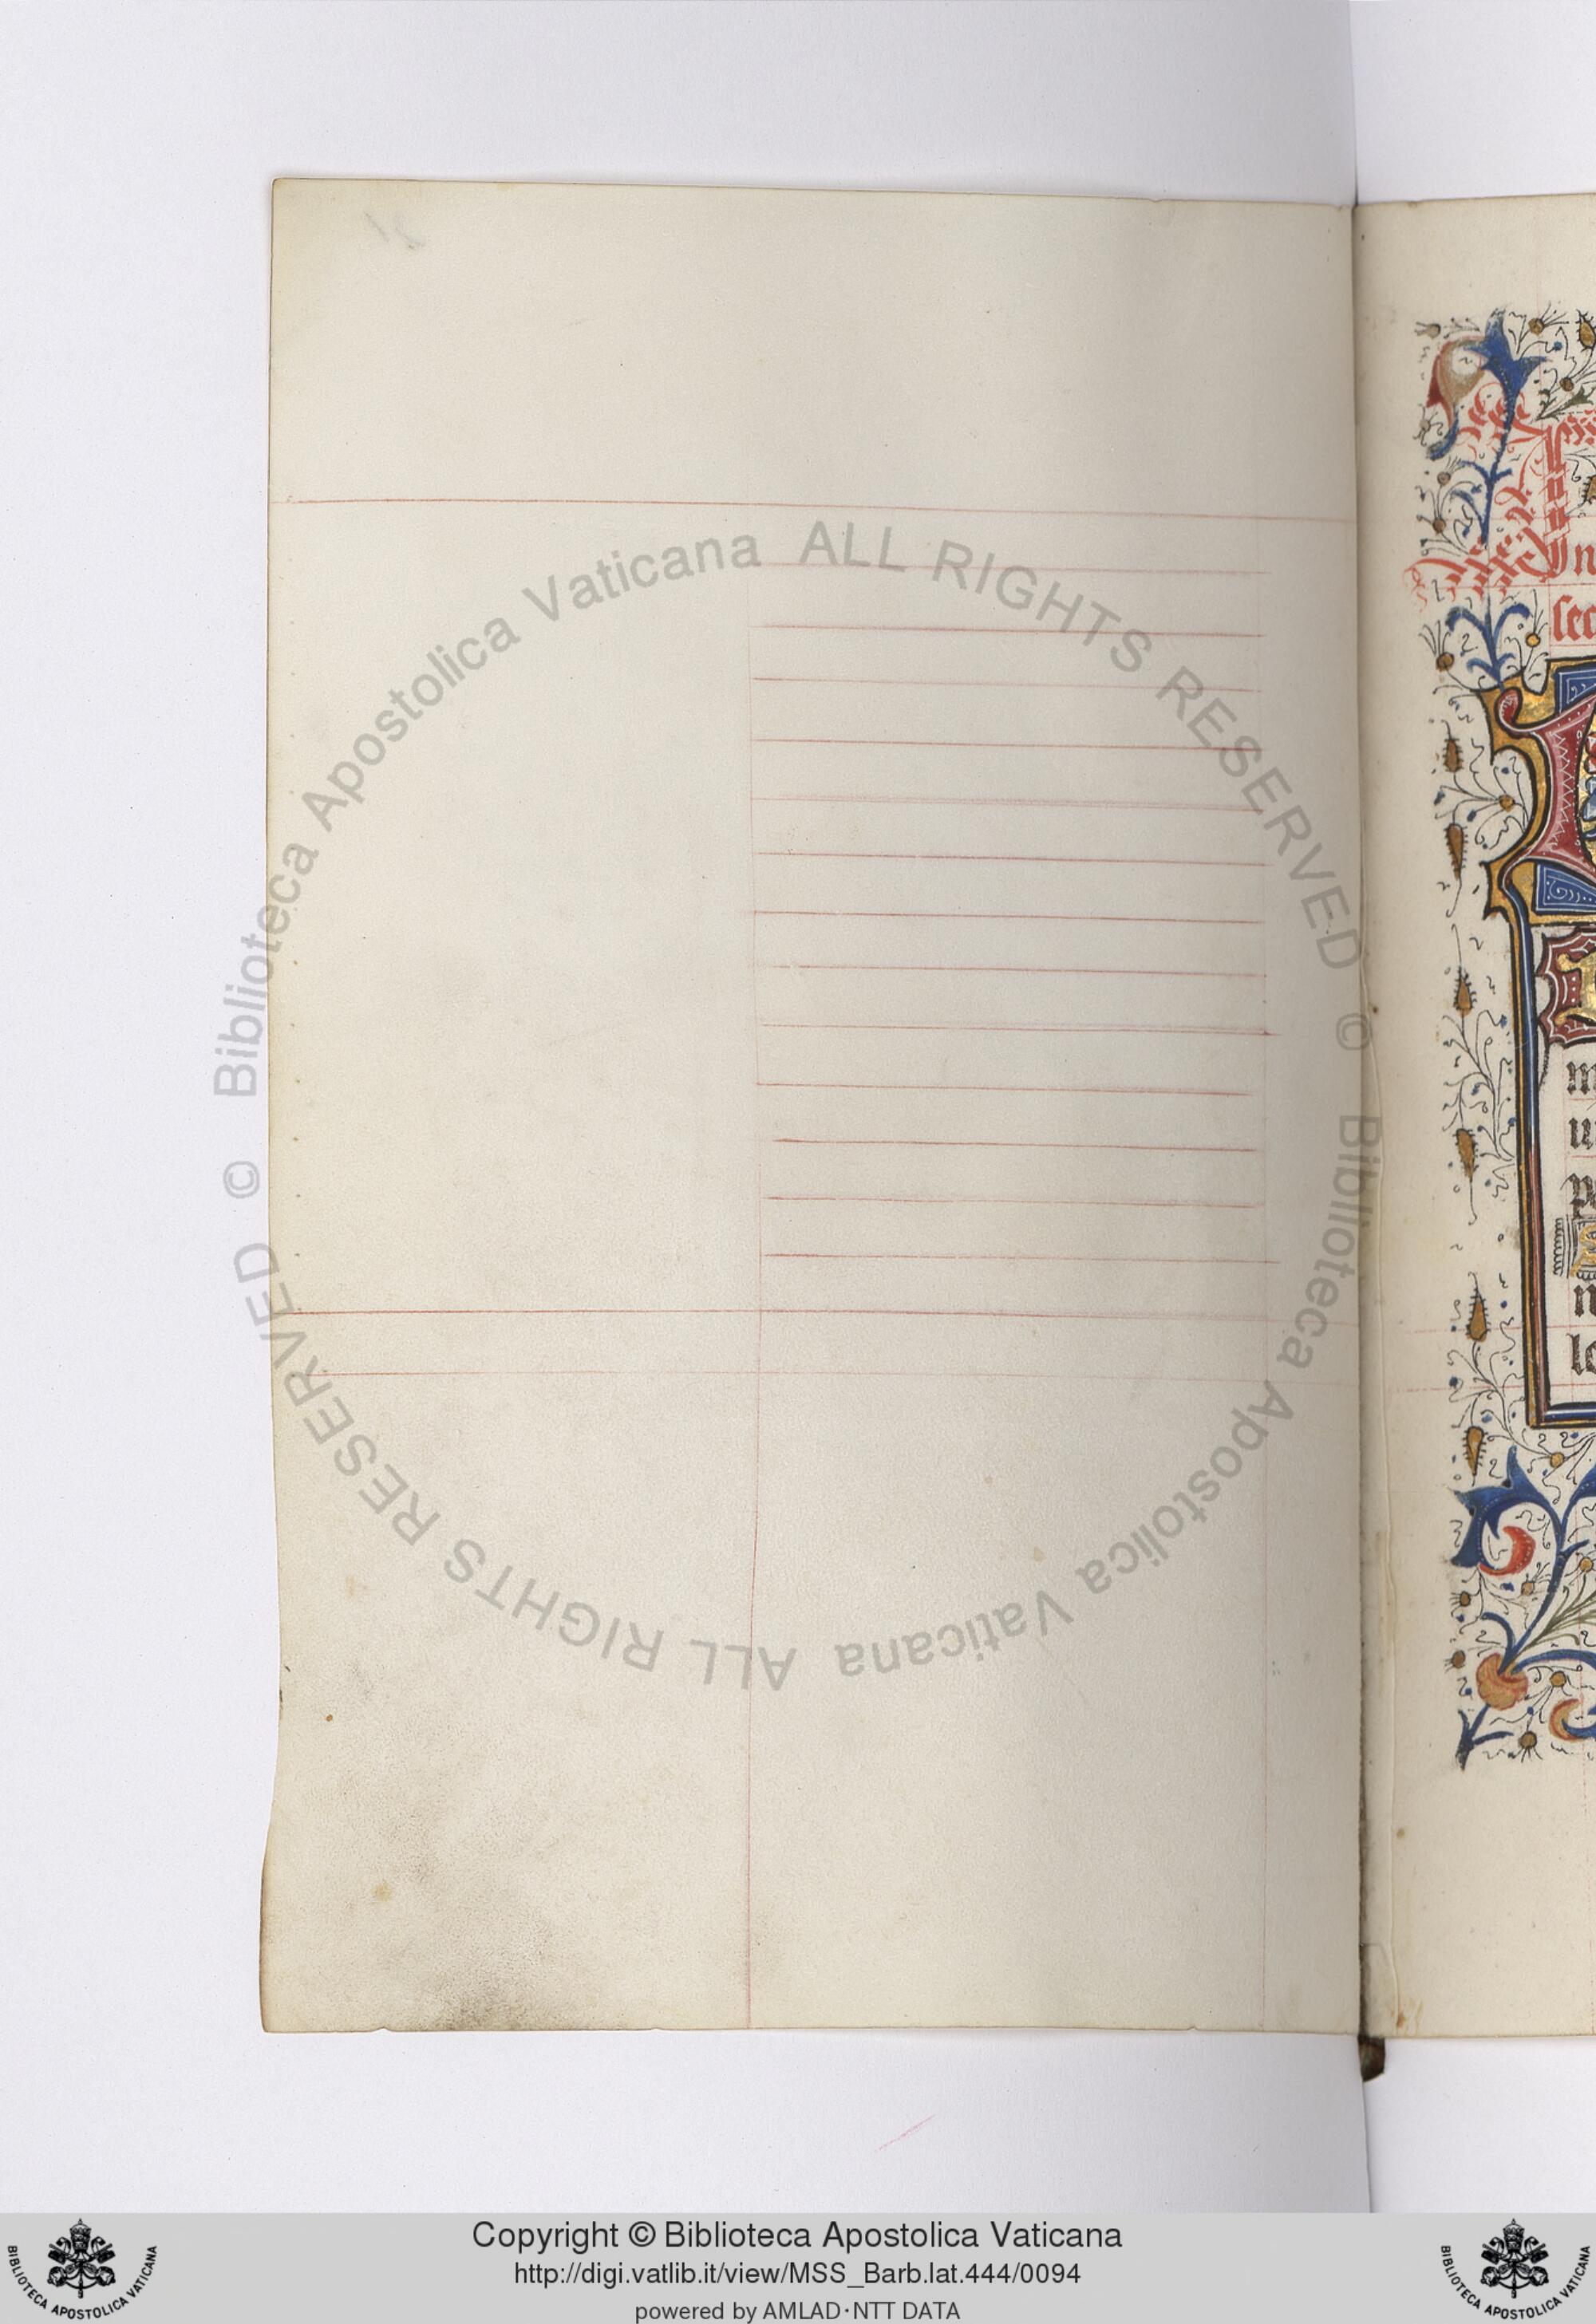 © Biblioteca Apostolica Vaticana ALL RIGHTS RESERVED
© Biblioteca Apostolica Vaticana ALL RIGHTS RESERVED
sec
m
u
le
Copyright © Biblioteca Apostolica Vaticana
http://digi.vatlib.it/view/MSS_Barb.lat.444/0094
powered by AMLAD·NTT DATA
BIBLIOTECA APOSTOLICA VATICANA
BIBLIOTECA APOSTOLICA VATICANA